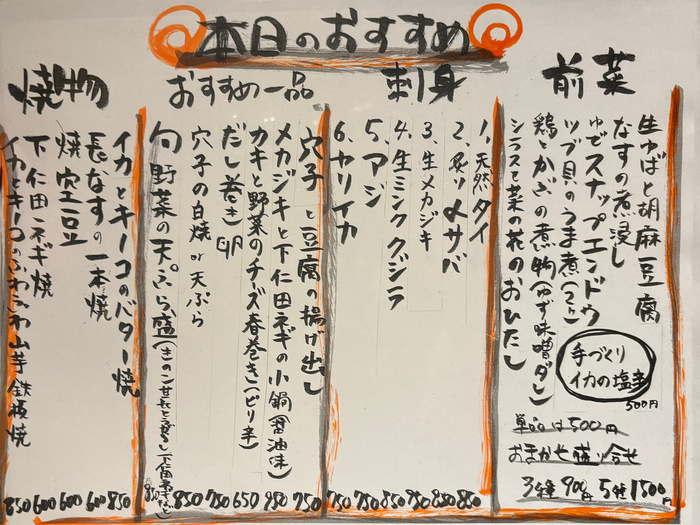 本日のおすすめ
前菜
生ゆばと胡麻豆腐
なすの煮浸し
ゆでスナップエンドウ
ツブ貝のうま煮(2ヶ)
鶏とかぶの煮物(ゆず味噌ダレ)
シラスと菜の花のおひたし
手づくり
イカの塩辛
500円
単品は500円
おまかせ盛り合せ
3種900円 5種1500円
刺身
1、天然ダイ 850
2、炙り〆サバ 850
3、生メカジキ 950
4、生ミンククジラ 850
5、アジ 750
6、ヤリイカ 750
おすすめ一品
穴子と豆腐の揚げ出し 750
メカジキと下仁田ネギの小鍋(醤油味) 950
カキと野菜のチーズ春巻き(ピリ辛) 650
だし巻き卵 750
穴子の白焼or天ぷら 850
旬野菜の天ぷら盛 850
焼物
イカとキーコのバター焼 850
長なすの一本焼 600
焼空豆 600
下仁田ネギ焼 600
イカとキーコのふわふわ山芋鉄板焼 850